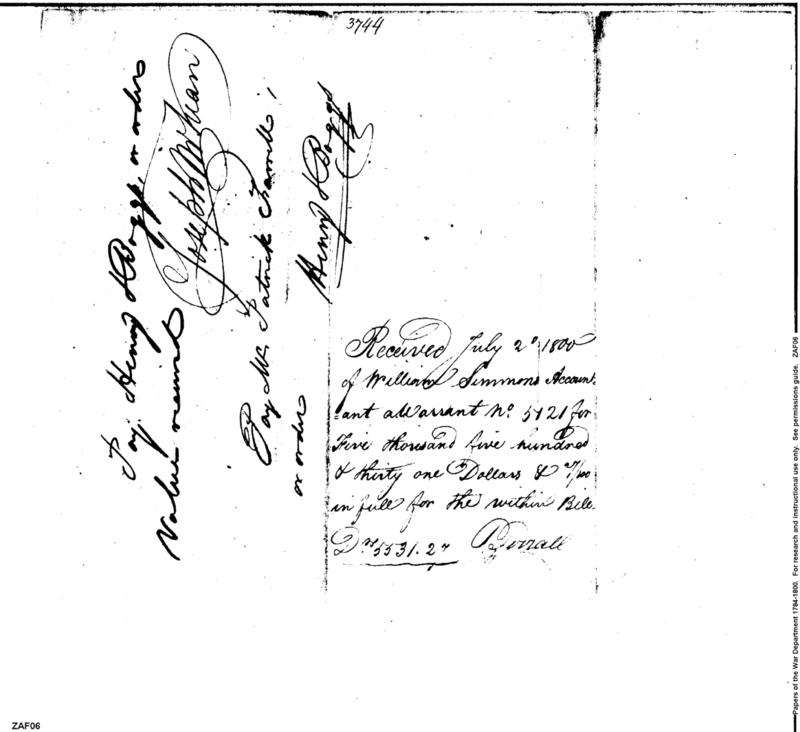 3744
Pay Henry H Boggs, or order
Value received
Joseph
Pay Mr. Patrick
or order
Henry H Boggs
Received July 2d 1800
of William Simmons Account:
ant a Warrant No. 5421 for
Five thousand five hundred
& thirty one Dollars & 27/100
in full for the within Bill.
Drs 5531.27
ZAF06
Papers of the War Department 1784-1800. For research and instructional use only. See permissions guide. ZAF06